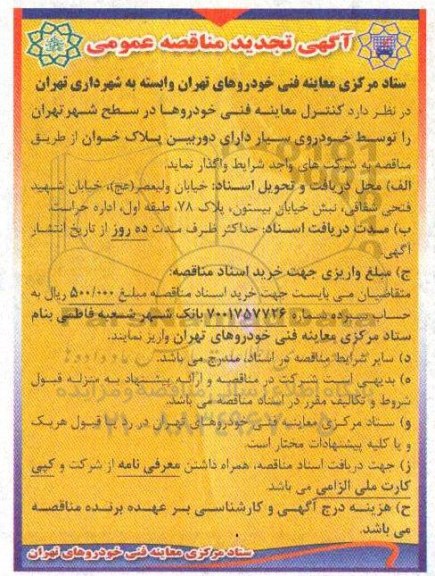 آگهی تجدید مناقصه عمومی
ستاد مرکزی معاینه فنی خودروهای تهران وابسته به شهرداری تهران
در نظر دارد کنترل معاینه فنی خودروها در سطح شهر تهران
را توسط خودروی سیار دارای دوربین پلاک خوان از طریق
مناقصه به شرکت های واجد شرایط واگذار نماید.
الف) محل دریافت و تحویل اسناد: خیابان ولیعصر(عج)، خیابان شهید
فتحی شقاقی، نبش خیابان بیستون، پلاک ۷۸، طبقه اول، اداره حراست.
ب) مدت دریافت اسناد: حداکثر ظرف مدت ده روز از تاریخ انتشار
آگهی.
ج) مبلغ واریزی جهت خرید اسناد مناقصه:
متقاضیان می بایست جهت خرید اسناد مناقصه مبلغ ۵۰۰/۰۰۰ ریال به
حساب سپرده شماره ۷۰۰۱۷۵۷۷۲۶ بانک شهر شعبه فاطمی بنام
ستاد مرکزی معاینه فنی خودروهای تهران واریز نمایند.
د) سایر شرایط مناقصه در اسناد، مندرج می باشد.
ه) بدیهی است شرکت در مناقصه و ارائه پیشنهاد به منزله قبول
شروط و تکالیف مقرر در اسناد مناقصه می باشد.
و) ستاد مرکزی معاینه فنی خودروهای تهران در رد یا قبول هریک
و یا کلیه پیشنهادات مختار است.
ز) جهت دریافت اسناد مناقصه، همراه داشتن معرفی نامه از شرکت و کپی
کارت ملی الزامی می باشد.
ح) هزینه درج آگهی و کارشناسی بر عهده برنده مناقصه
می باشد.
ستاد مرکزی معاینه فنی خودروهای تهران